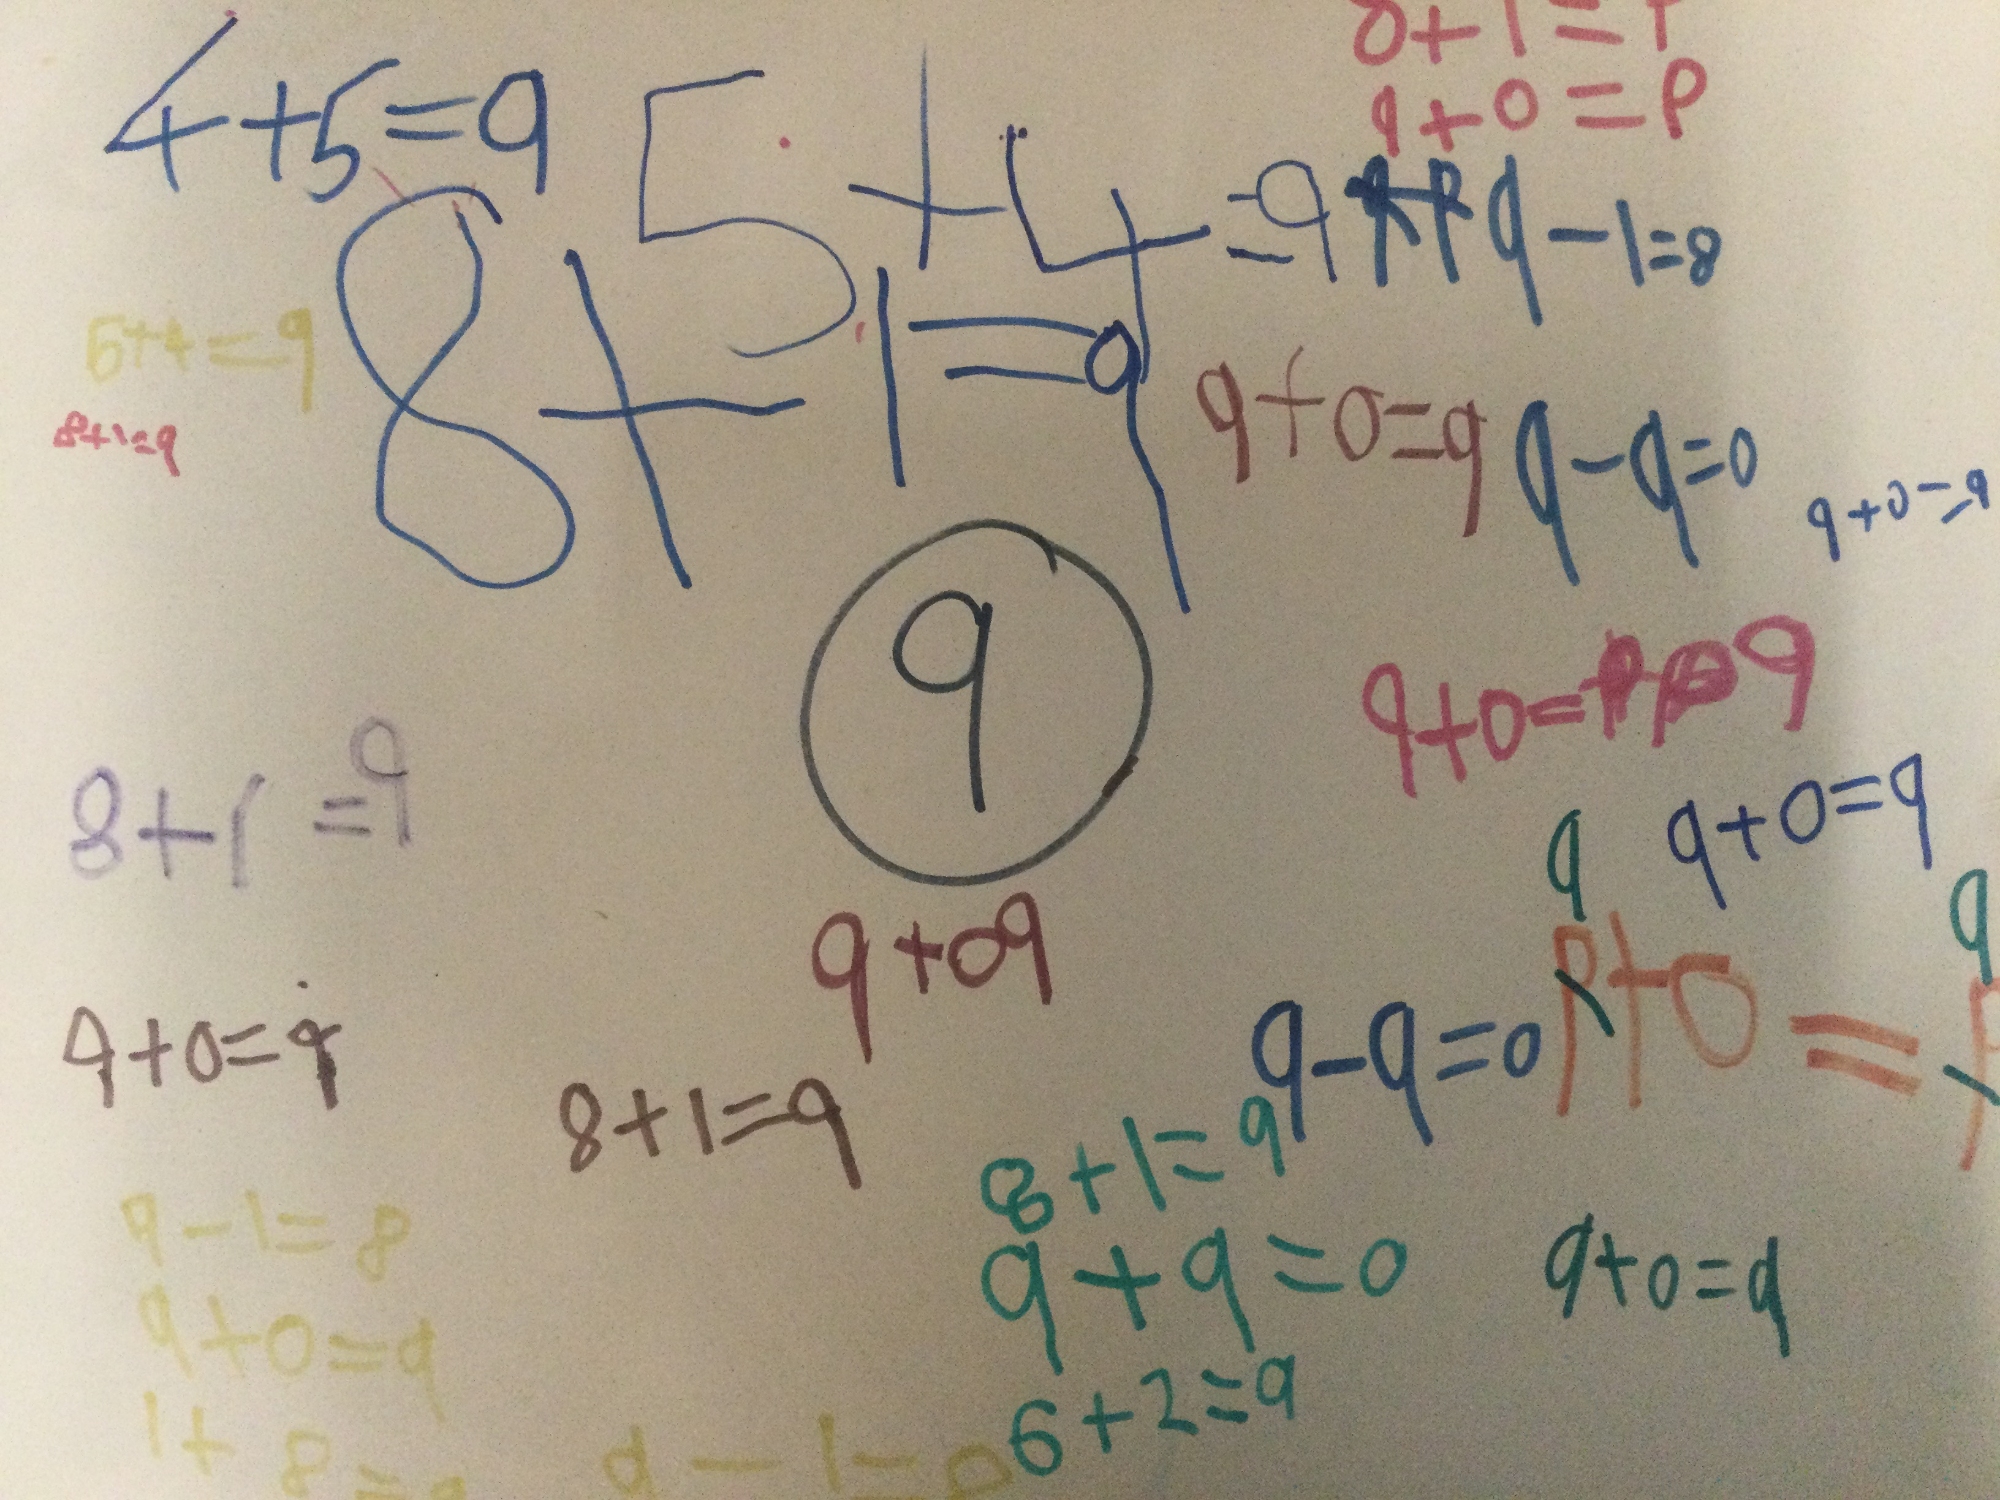 8+1=9
9+0=9
4+5=9
5+4=9
9-1=8
5+4=9
8+1=9
8+1=9
9+0=9
9-9=0
9+0=9
9
9+0=9
8+1=9
9+0=9
9
9
9+0=9
9+09
9-9=0
9+0=9
8+1=9
8+1=9
9-1=8
9+9=0
9+0=9
9+0=9
6+2=9
1+8=9